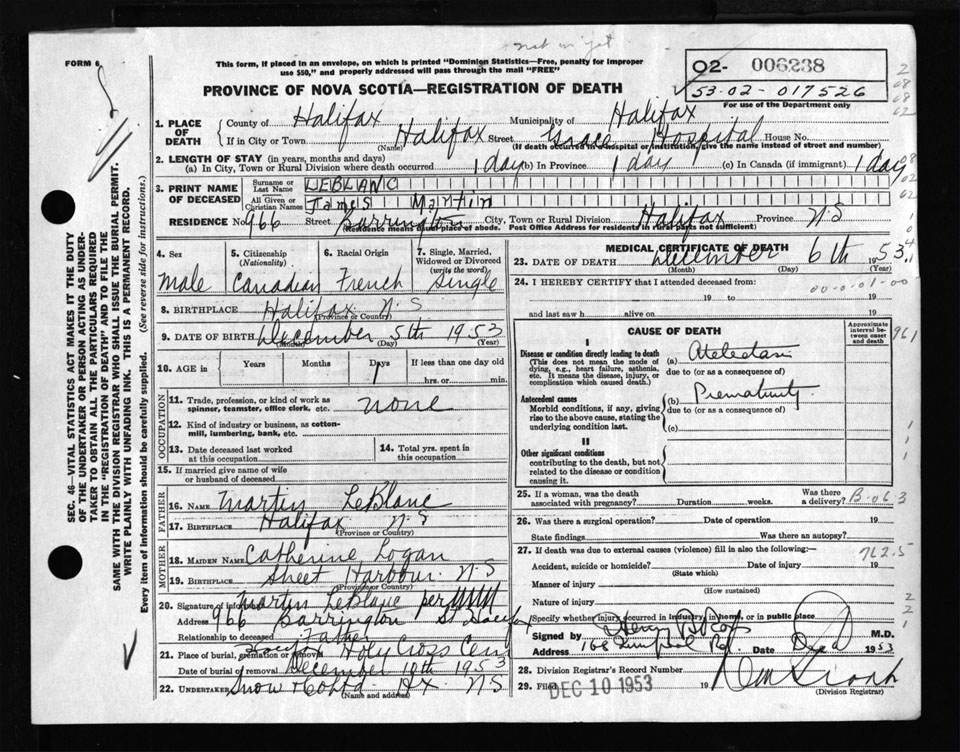 not in yet
FORM 6
This form, if placed in an envelope, on which is printed "Dominion Statistics—Free, penalty for improper
use $50," and properly addressed will pass through the mail "FREE"
PROVINCE OF NOVA SCOTIA—REGISTRATION OF DEATH
02- 006238
53-02-017526
For use of the Department only
1. PLACE OF DEATH
County of Halifax Municipality of Halifax
If in City or Town Halifax Street Grace Hospital House No.
(Name) (If death occurred in a hospital or institution, give the name instead of street and number)
2. LENGTH OF STAY (in years, months and days)
(a) In City, Town or Rural Division where death occurred 1 day (b) In Province 1 day (c) In Canada (if immigrant) 1 day
3. PRINT NAME OF DECEASED
Surname or Last Name LEBLANC
All Given or Christian Names James Martin
RESIDENCE No. 966 Street Barrington City, Town or Rural Division Halifax Province N.S
(Residence means usual place of abode. Post Office Address for residents in rural parts not sufficient)
4. Sex
Male
5. Citizenship (Nationality)
Canadian
6. Racial Origin
French
7. Single, Married, Widowed or Divorced (write the word)
Single
8. BIRTHPLACE Halifax N.S
(Province or Country)
9. DATE OF BIRTH December 5th 1953
(Month) (Day) (Year)
10. AGE in Years Months Days 1 If less than one day old
hrs. or min.
OCCUPATION
11. Trade, profession, or kind of work as spinner, teamster, office clerk, etc. none
12. Kind of industry or business, as cotton-mill, lumbering, bank, etc.
13. Date deceased last worked at this occupation
14. Total yrs. spent in this occupation
15. If married give name of wife or husband of deceased
FATHER
16. NAME Martin LeBlanc
17. BIRTHPLACE Halifax N-S
(Province or Country)
MOTHER
18. MAIDEN NAME Catherine Logan
19. BIRTHPLACE Sheet Harbour N-S
(Province or Country)
20. Signature of informant Martin LeBlanc per
Address 966 Barrington St Halifax
Relationship to deceased Father
21. Place of burial, cremation or removal Holy Cross Cem
Date of burial or removal December 10th 1953
22. UNDERTAKER Snow & Co Ltd Hx NS
(Name and address)
MEDICAL CERTIFICATE OF DEATH
23. DATE OF DEATH December 6th 1953
(Month) (Day) (Year)
24. I HEREBY CERTIFY that I attended deceased from:
19 to 19
and last saw h alive on 19
CAUSE OF DEATH
Approximate interval between onset and death
I
Disease or condition directly leading to death (a)
(This does not mean the mode of dying, e.g., heart failure, asthenia, etc. It means the disease, injury, or complication which caused death.)
due to (or as a consequence of)
Antecedent causes (b) Prematurity
Morbid conditions, if any, giving rise to the above cause, stating the underlying condition last.
due to (or as a consequence of)
(c)
II
Other significant conditions
contributing to the death, but not related to the disease or condition causing it.
25. If a woman, was the death associated with pregnancy? Duration weeks. Was there a delivery?
B.063
26. Was there a surgical operation? Date of operation 19
State findings Was there an autopsy?
27. If death was due to external causes (violence) fill in also the following:—
762.5
Accident, suicide or homicide? Date of injury 19
(State which)
Manner of injury
(How sustained)
Nature of injury
Specify whether injury occurred in industry, in home, or in public place
Signed by M.D.
Address Date 1953
28. Division Registrar's Record Number
29. Filed DEC 10 1953 19
(Division Registrar)
SEC. 46—VITAL STATISTICS ACT MAKES IT THE DUTY
OF THE UNDERTAKER OR PERSON ACTING AS UNDER-
TAKER TO OBTAIN ALL THE PARTICULARS REQUIRED
IN THE "REGISTRATION OF DEATH" AND TO FILE THE
SAME WITH THE DIVISION REGISTRAR WHO SHALL ISSUE THE BURIAL PERMIT.
WRITE PLAINLY WITH UNFADING INK. THIS IS A PERMANENT RECORD.
Every item of information should be carefully supplied. (See reverse side for instructions.)